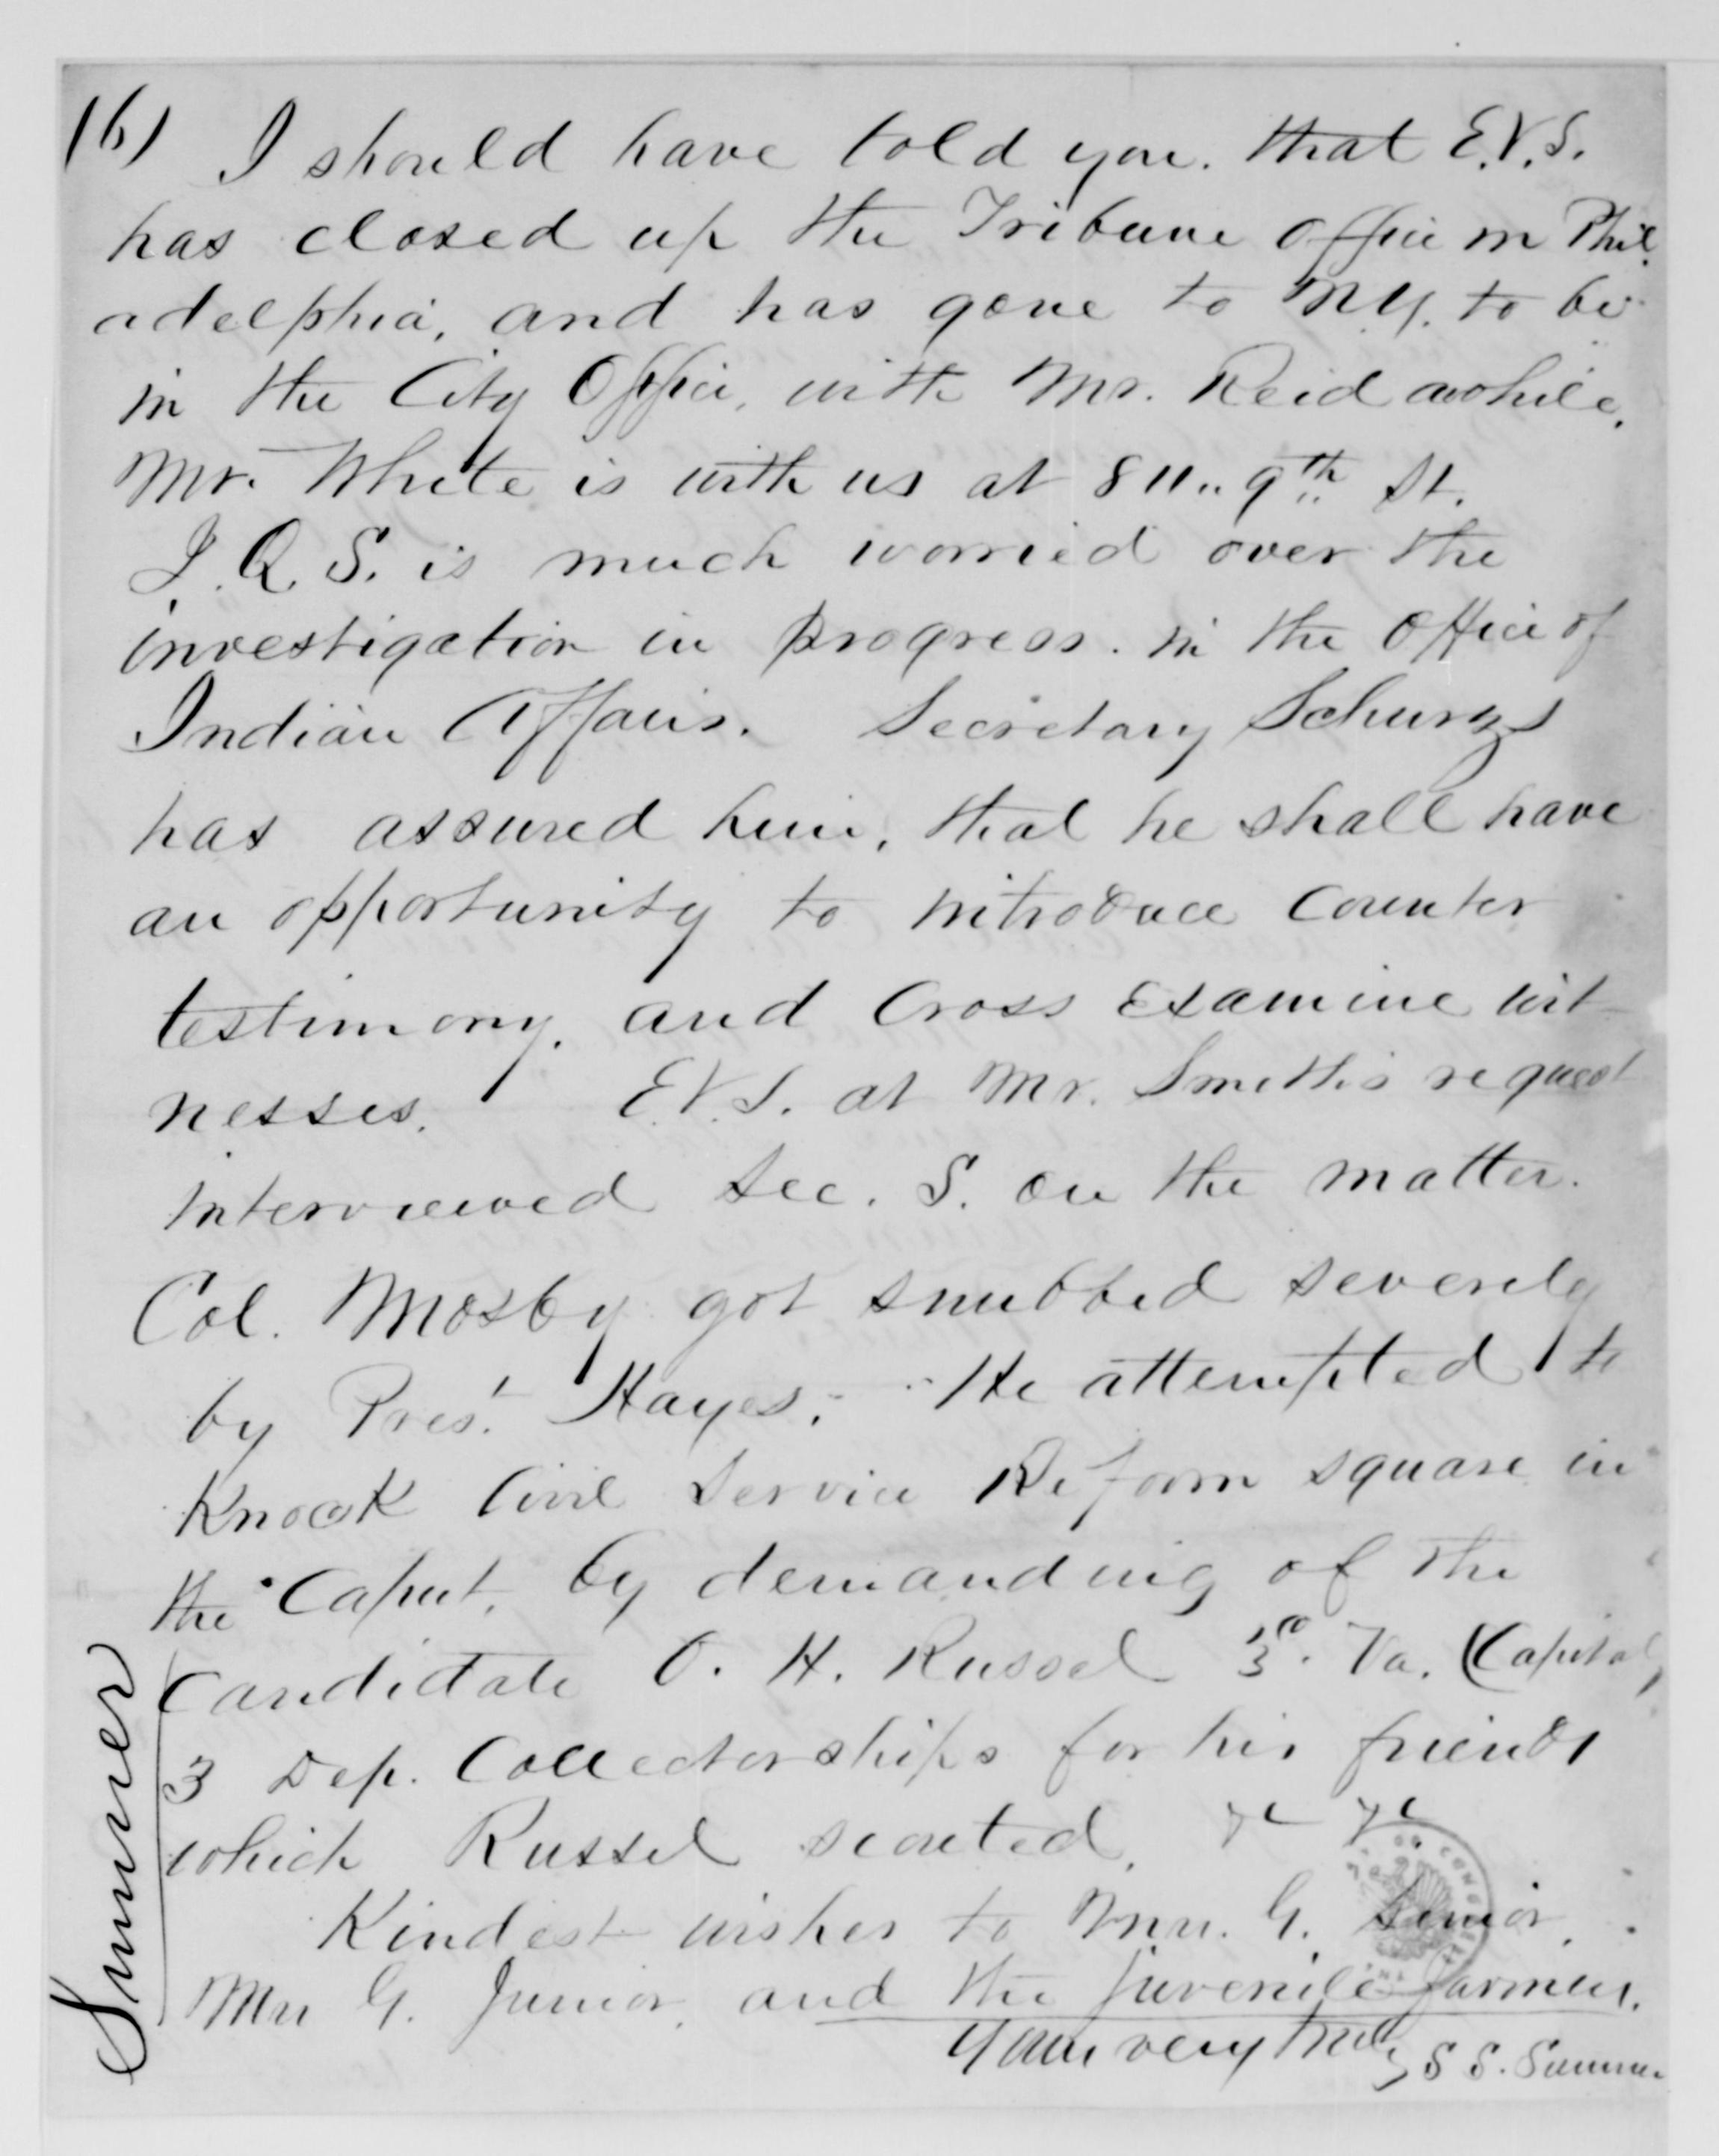 (6) I should have told you. that E.V.S.
has closed up the Tribune office in Phil
adelphia, and has gone to N.Y. to be
in the City Office, with Mr. Reid awhile.
Mr. White is with us at 811.. 9th St.
J. Q. S. is much worried over the
investigation in progress. in the Office of
Indian Affairs. Secretary Schurz
has assured him, that he shall have
an opportunity to introduce counter
testimony. and Cross Examine wit
nesses. E.V.S. at Mr. Smith's request
interviewed Sec. S. on the matter.
Col. Mosby got snubbed severely
by Pres't Hayes. He attempted to
Knock Civil Service Reform square in
the Caput. by demanding of the
Candidate O. H. Russel 3d. Va. (Capital)
3 Dep. Collectorships for his friends
which Russel scouted. &c &c
Kindest wishes to Mrs. G. Senior.
Mrs G. Junior, and the juvenile farmers.
Yours very truly
S S. Sumner
Sumner